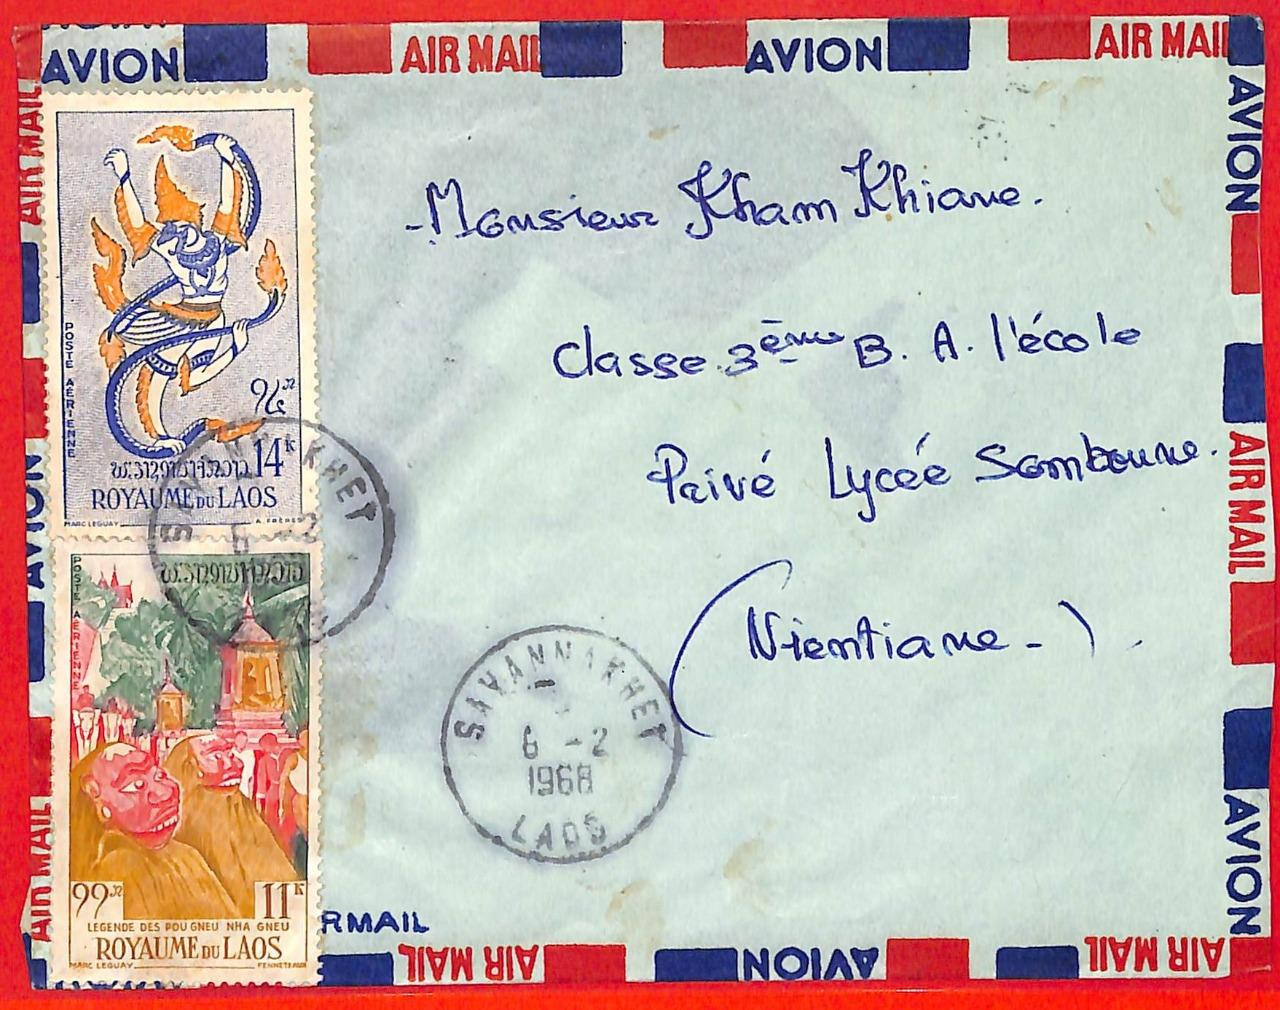 AVION AIR MAIL AVION AIR MAIL
- Monsieur Kham Khiane.
Classe 3ème B. A. l'école
Privé Lycée Somboune.
(Vientiane -)
POSTE AÉRIENNE
14K
ROYAUME DU LAOS
MARC LEGUAY A. FRÈRES
SAVANNAKHET
6 -2
POSTE AÉRIENNE
໑໑
11K
LEGENDE DES POU GNEU NHA GNEU
ROYAUME DU LAOS
MARC LEGUAY
SAVANNAKHET
6 -2
1968
LAOS
RMAIL
AIR MAIL
AVION
AIR MAIL
AVION
AIR MAIL
AVION
AIR MAIL AVION AIR MAIL